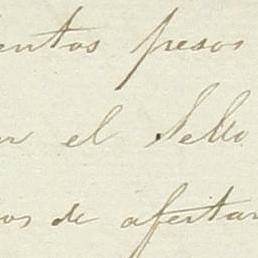 entos pesos
el Sello
os de afertar